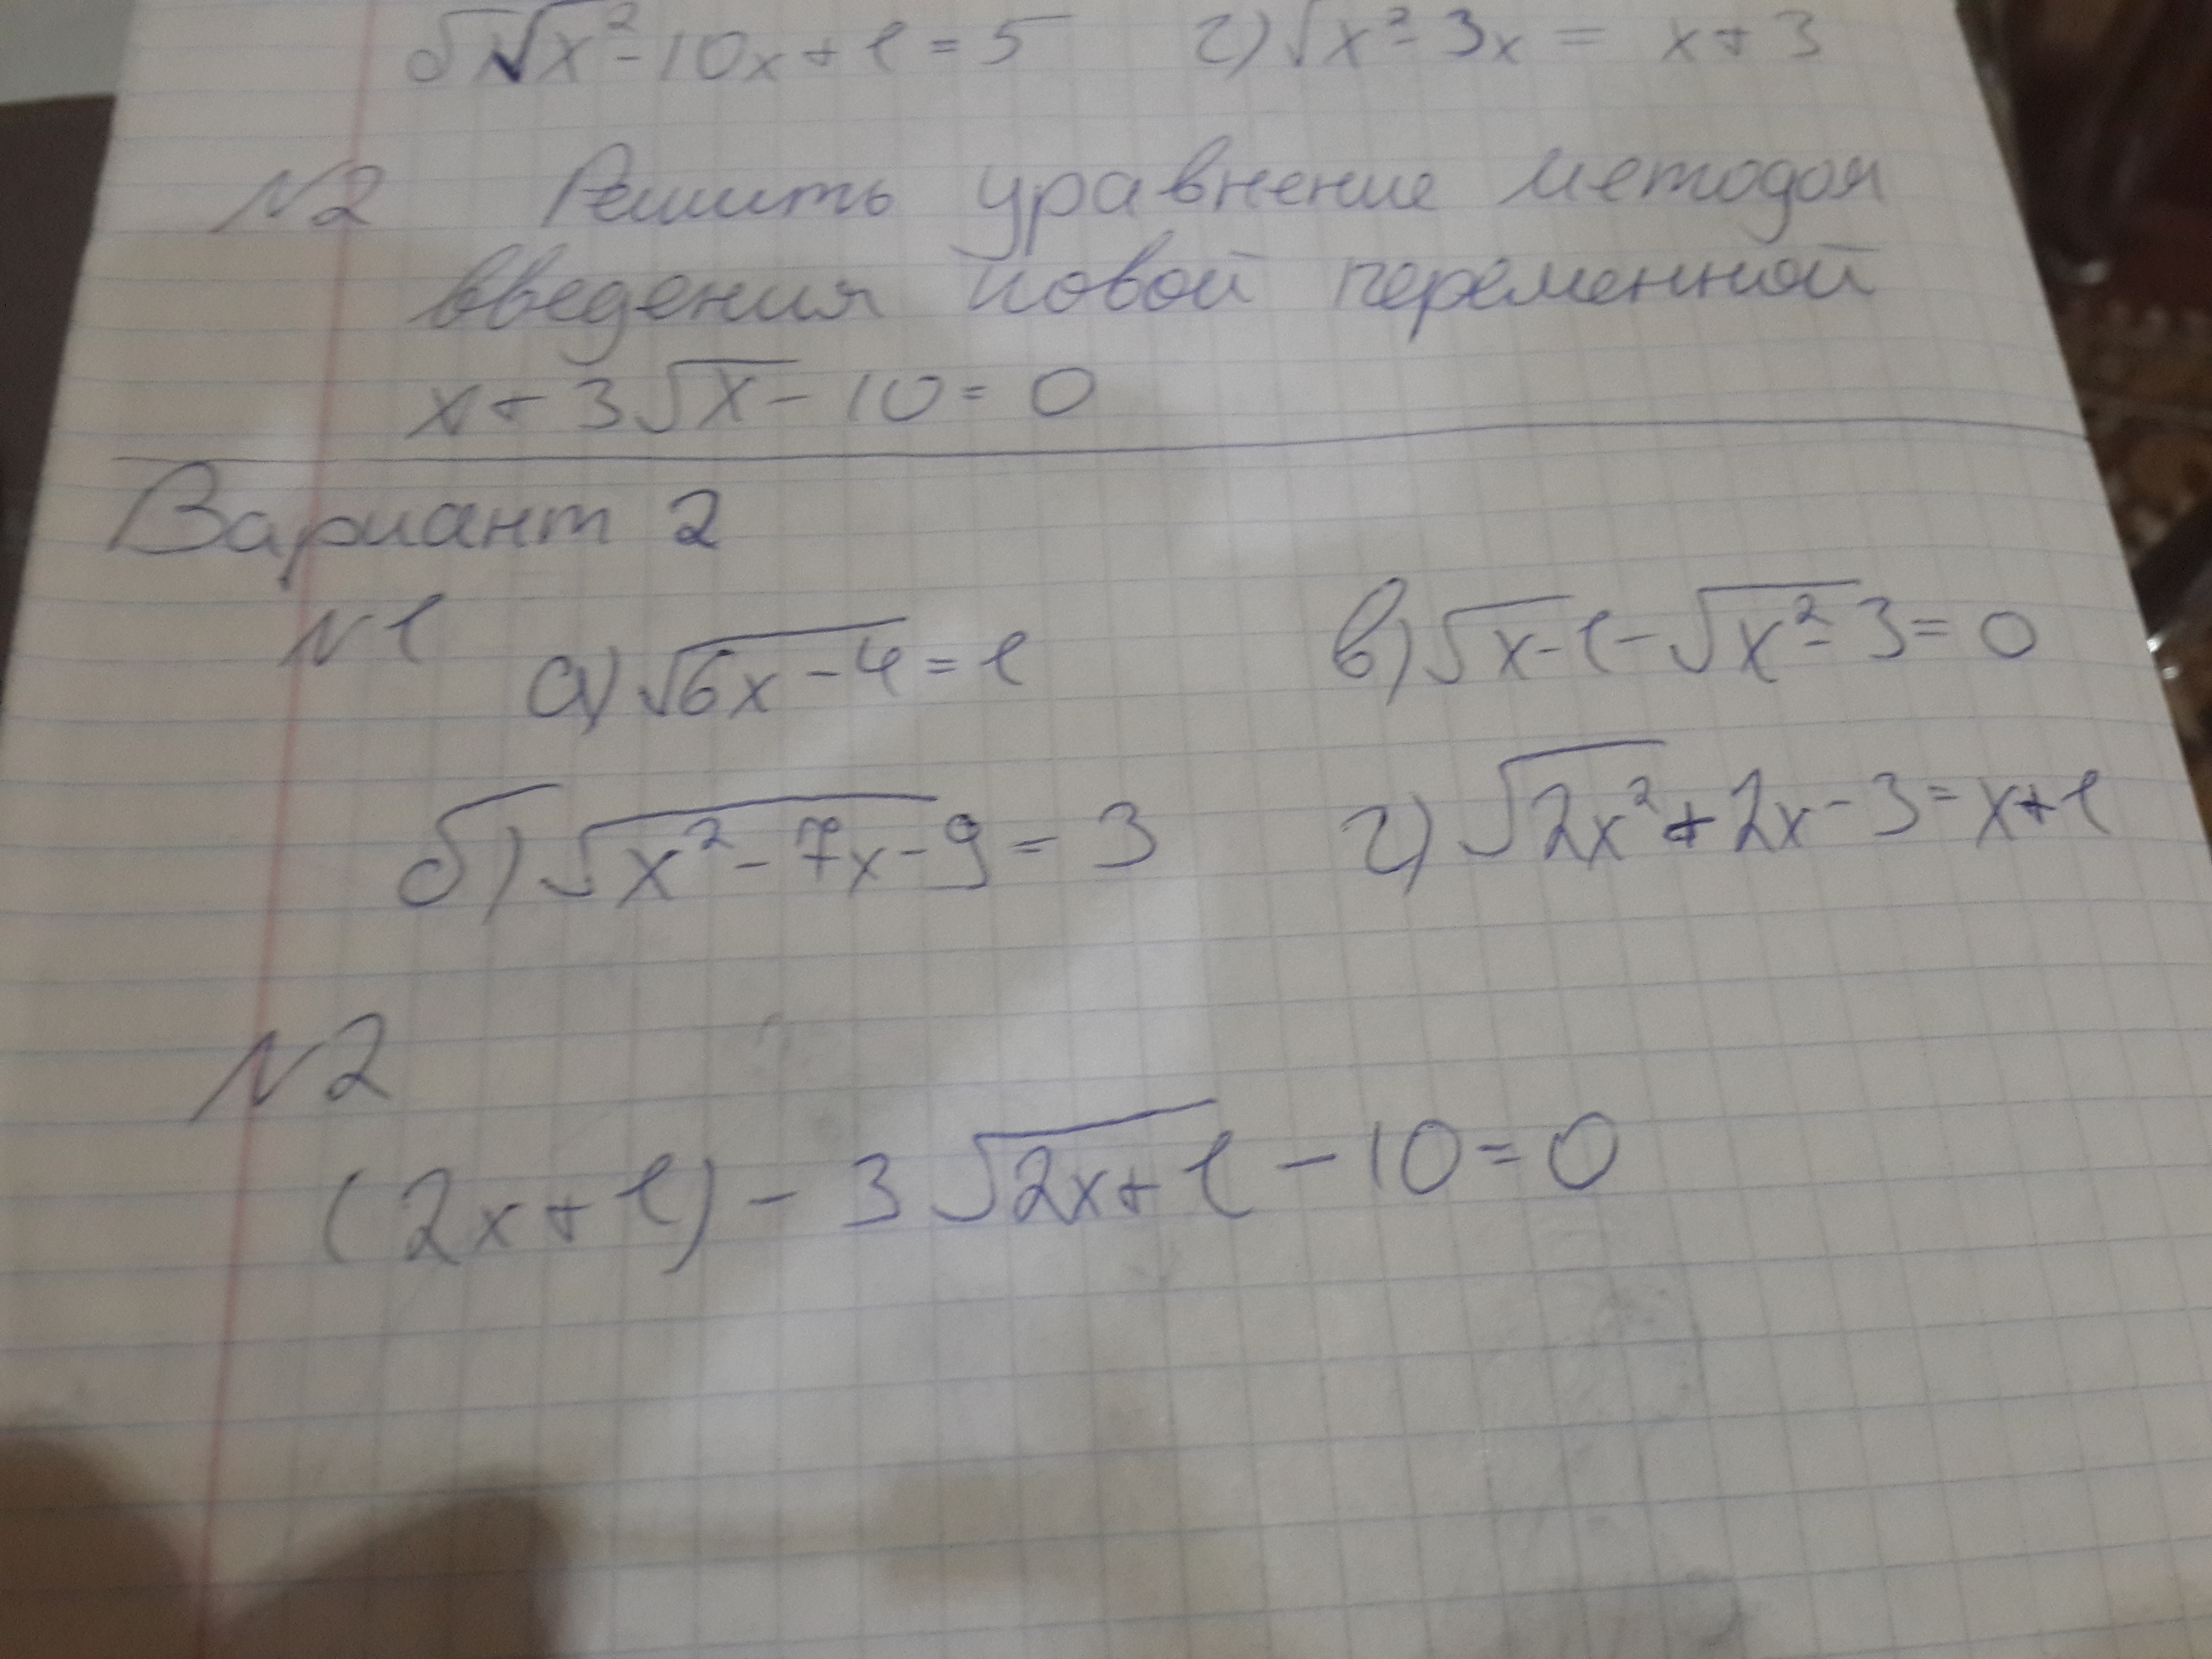 б) √x²-10x+1=5 г) √x²-3x = x+3
N2 Решить уравнение методом
введения новой переменной
x+3√x-10=0
Вариант 2
N1
а) √6x-4=1 в) √x-1-√x²-3=0
б) √x²-7x-9=3 г) √2x²+2x-3=x+1
N2
(2x+1)-3√2x+1-10=0